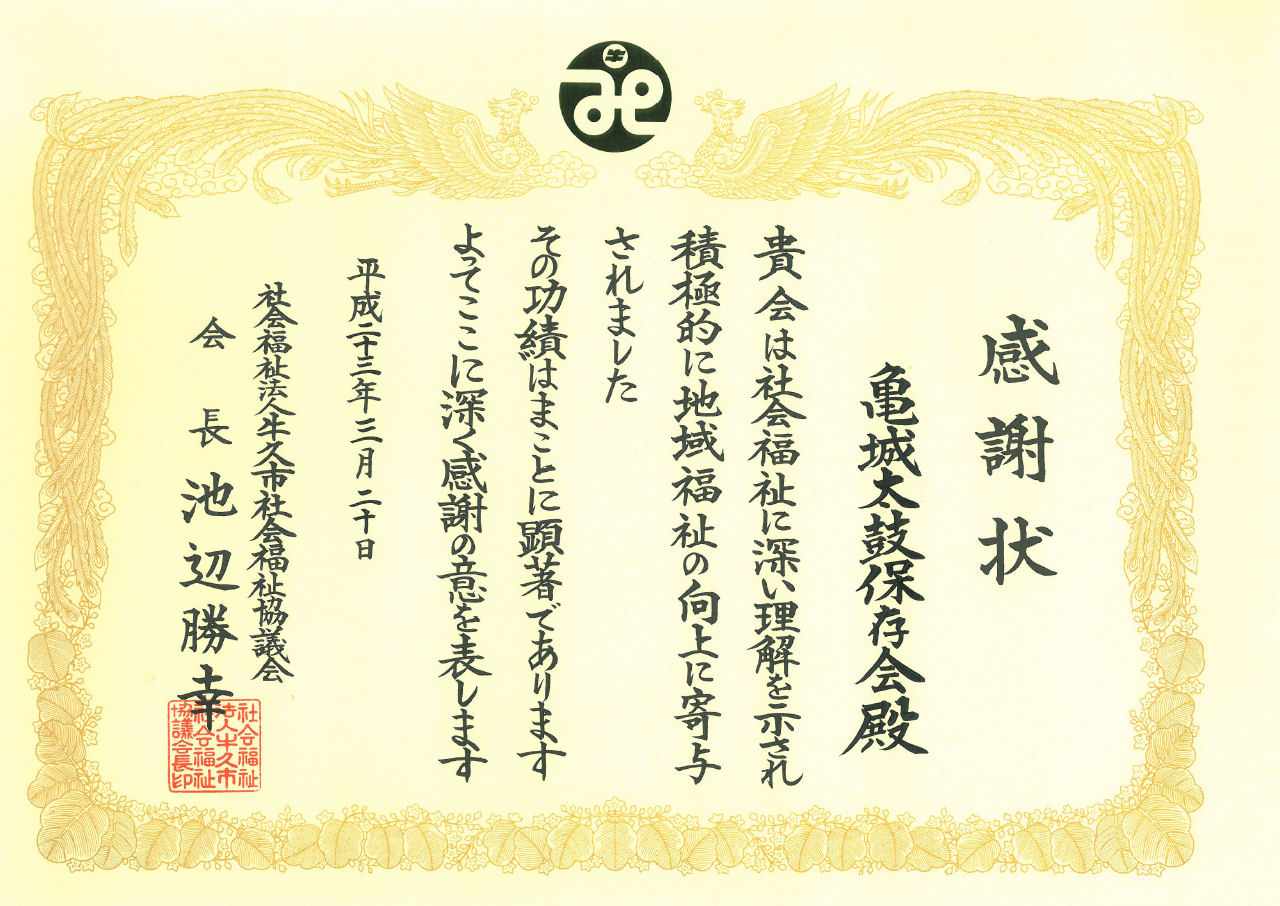 牛
感謝状
亀城太鼓保存会殿
貴会は社会福祉に深い理解を示され
積極的に地域福祉の向上に寄与
されました
その功績はまことに顕著であります
よってここに深く感謝の意を表します
平成二十三年三月二十日
社会福祉法人牛久市社会福祉協議会
会長池辺勝幸
社会福祉
法人牛久市
社会福祉
協議会長印